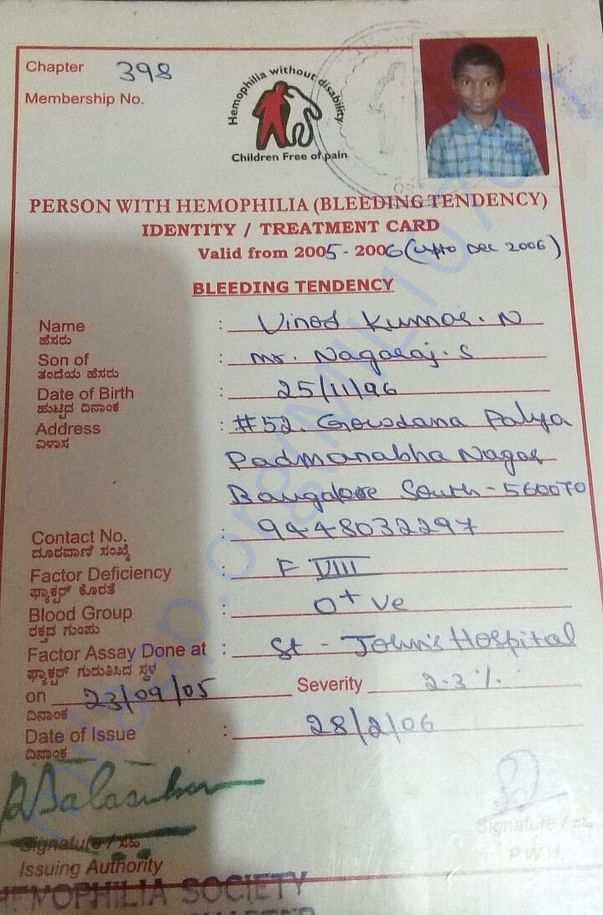 Chapter 398
Membership No.
Hemophilia without disability
Children Free of pain
PERSON WITH HEMOPHILIA (BLEEDING TENDENCY)
IDENTITY / TREATMENT CARD
Valid from 2005 - 2006 (upto Dec 2006)
BLEEDING TENDENCY
Name : Vinod Kumar. N
ಹೆಸರು
Son of : Mr. Nagaraj. S
ತಂದೆಯ ಹೆಸರು
Date of Birth : 25/11/96
ಹುಟ್ಟಿದ ದಿನಾಂಕ
Address : #52. Gowdana Palya
ವಿಳಾಸ
Padmanabha Nagar
Bangalore South - 560070
Contact No. : 9448032297
ದೂರವಾಣಿ ಸಂಖ್ಯೆ
Factor Deficiency : F VIII
ಫ್ಯಾಕ್ಟರ್ ಕೊರತೆ
Blood Group : O+ ve
ರಕ್ತದ ಗುಂಪು
Factor Assay Done at : St - John's Hospital
ಫ್ಯಾಕ್ಟರ್ ಗುರುತಿಸಿದ ಸ್ಥಳ
on 23/09/05 Severity 2-3%
ದಿನಾಂಕ
Date of Issue : 28/2/06
ದಿನಾಂಕ
Signature / ಸಹಿ
Issuing Authority
Signature / ಸಹಿ
P.W.H
HEMOPHILIA SOCIETY
CHAPTER